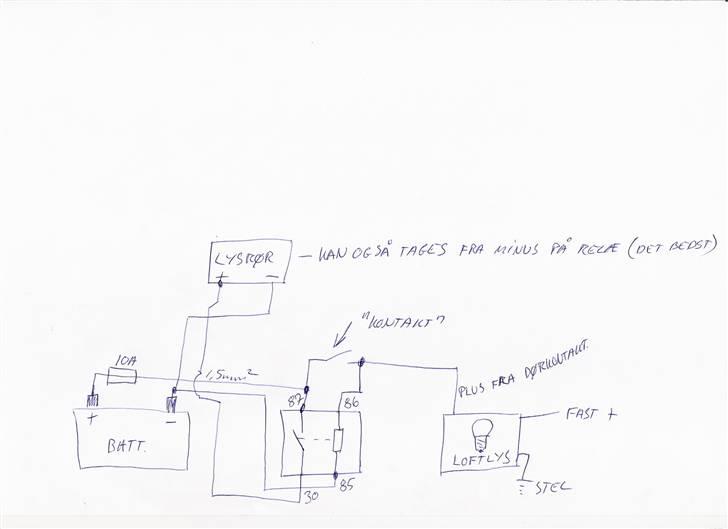 LYSRØR
+ -
- KAN OGSÅ TAGES FRA MINUS PÅ RELÆ (DET BEDST)
"KONTAKT"
10A
1,5mm²
PLUS FRA DØRKONTAKT.
87
86
+ -
BATT.
FAST +
LOFTLYS
STEL
30
85